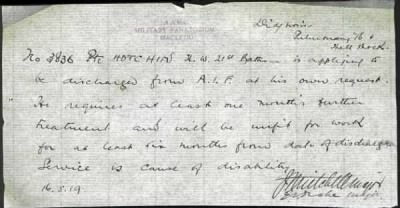 A.A.M.C.
MILITARY SANATORIUM
MACLEOD
Diagnosis
Pulmonary Tb &
Shell Shock.
No 3836 Pte HOTCHIN H. W. 21st Battn is applying to
be discharged from A.I.F. at his own request.
He requires at least one months further
treatment and will be unfit for work
for at least six months from date of discharge
Service is cause of disability
16.5.19
J Mitchell Major